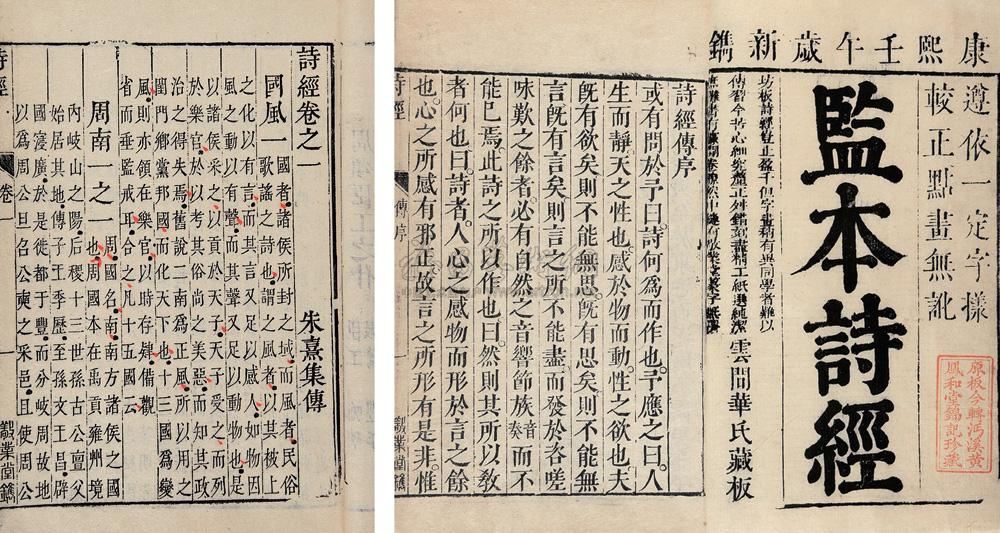 康熙壬午歲新鐫
遵依一定字樣
較正點畫無訛
監本詩經
坊板詩經豈止盈千但字畫稍有異同學者難以
傳習今苦心細究釐正舛錯刻畫精工紙選純潔
雲間華氏藏板
原板今歸沔溪黃
鳳和堂錦記珍藏
詩經傳序
或有問於予曰詩何爲而作也予應之曰人
生而靜天之性也感於物而動性之欲也夫
旣有欲矣則不能無思旣有思矣則不能無
言旣有言矣則言之所不能盡而發於咨嗟
味歎之餘者必有自然之音響節族音奏而不
能已焉此詩之所以作也曰然則其所以敎
者何也曰詩者人心之感物而形於言之餘
也心之所感有邪正故言之所形有是非惟
詩經 傳序
詩經卷之一
朱熹集傳
國風一 國者諸侯所封之域而風者民俗
歌謠之詩也謂之風者以其被上
之化以有言而其言又足以感人如物因
風之動以有聲而其聲又足以動物也是
以諸侯采之以貢於天子天子受之而列
於樂官於以考其俗尚之美惡而知其政
治之得失焉舊說二南爲正風所以用之
閨門鄉黨邦國而化天下也十三國爲變
風則亦領在樂官以時存肄備觀
省而垂監戒耳合之凡十五國云
周南一之一 周國名南南方諸侯之國
也周國本在禹貢雍州境
內岐山之陽后稷十三世孫古公亶甫
始居其地傳子王季歷至孫文王昌辟
國寖廣於是徙都于豐而分岐周故地
以爲周公旦召公奭之采邑且使周公
詩經 卷一 一